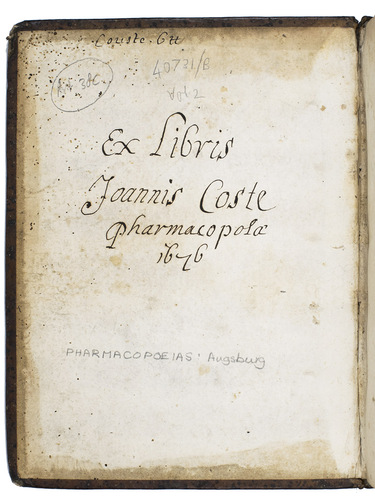 Couste. 6tt
40721/B
Vol 2
Ex Libris
Joannis Coste
Pharmacopolæ
1676
PHARMACOPOEIAS: Augsburg